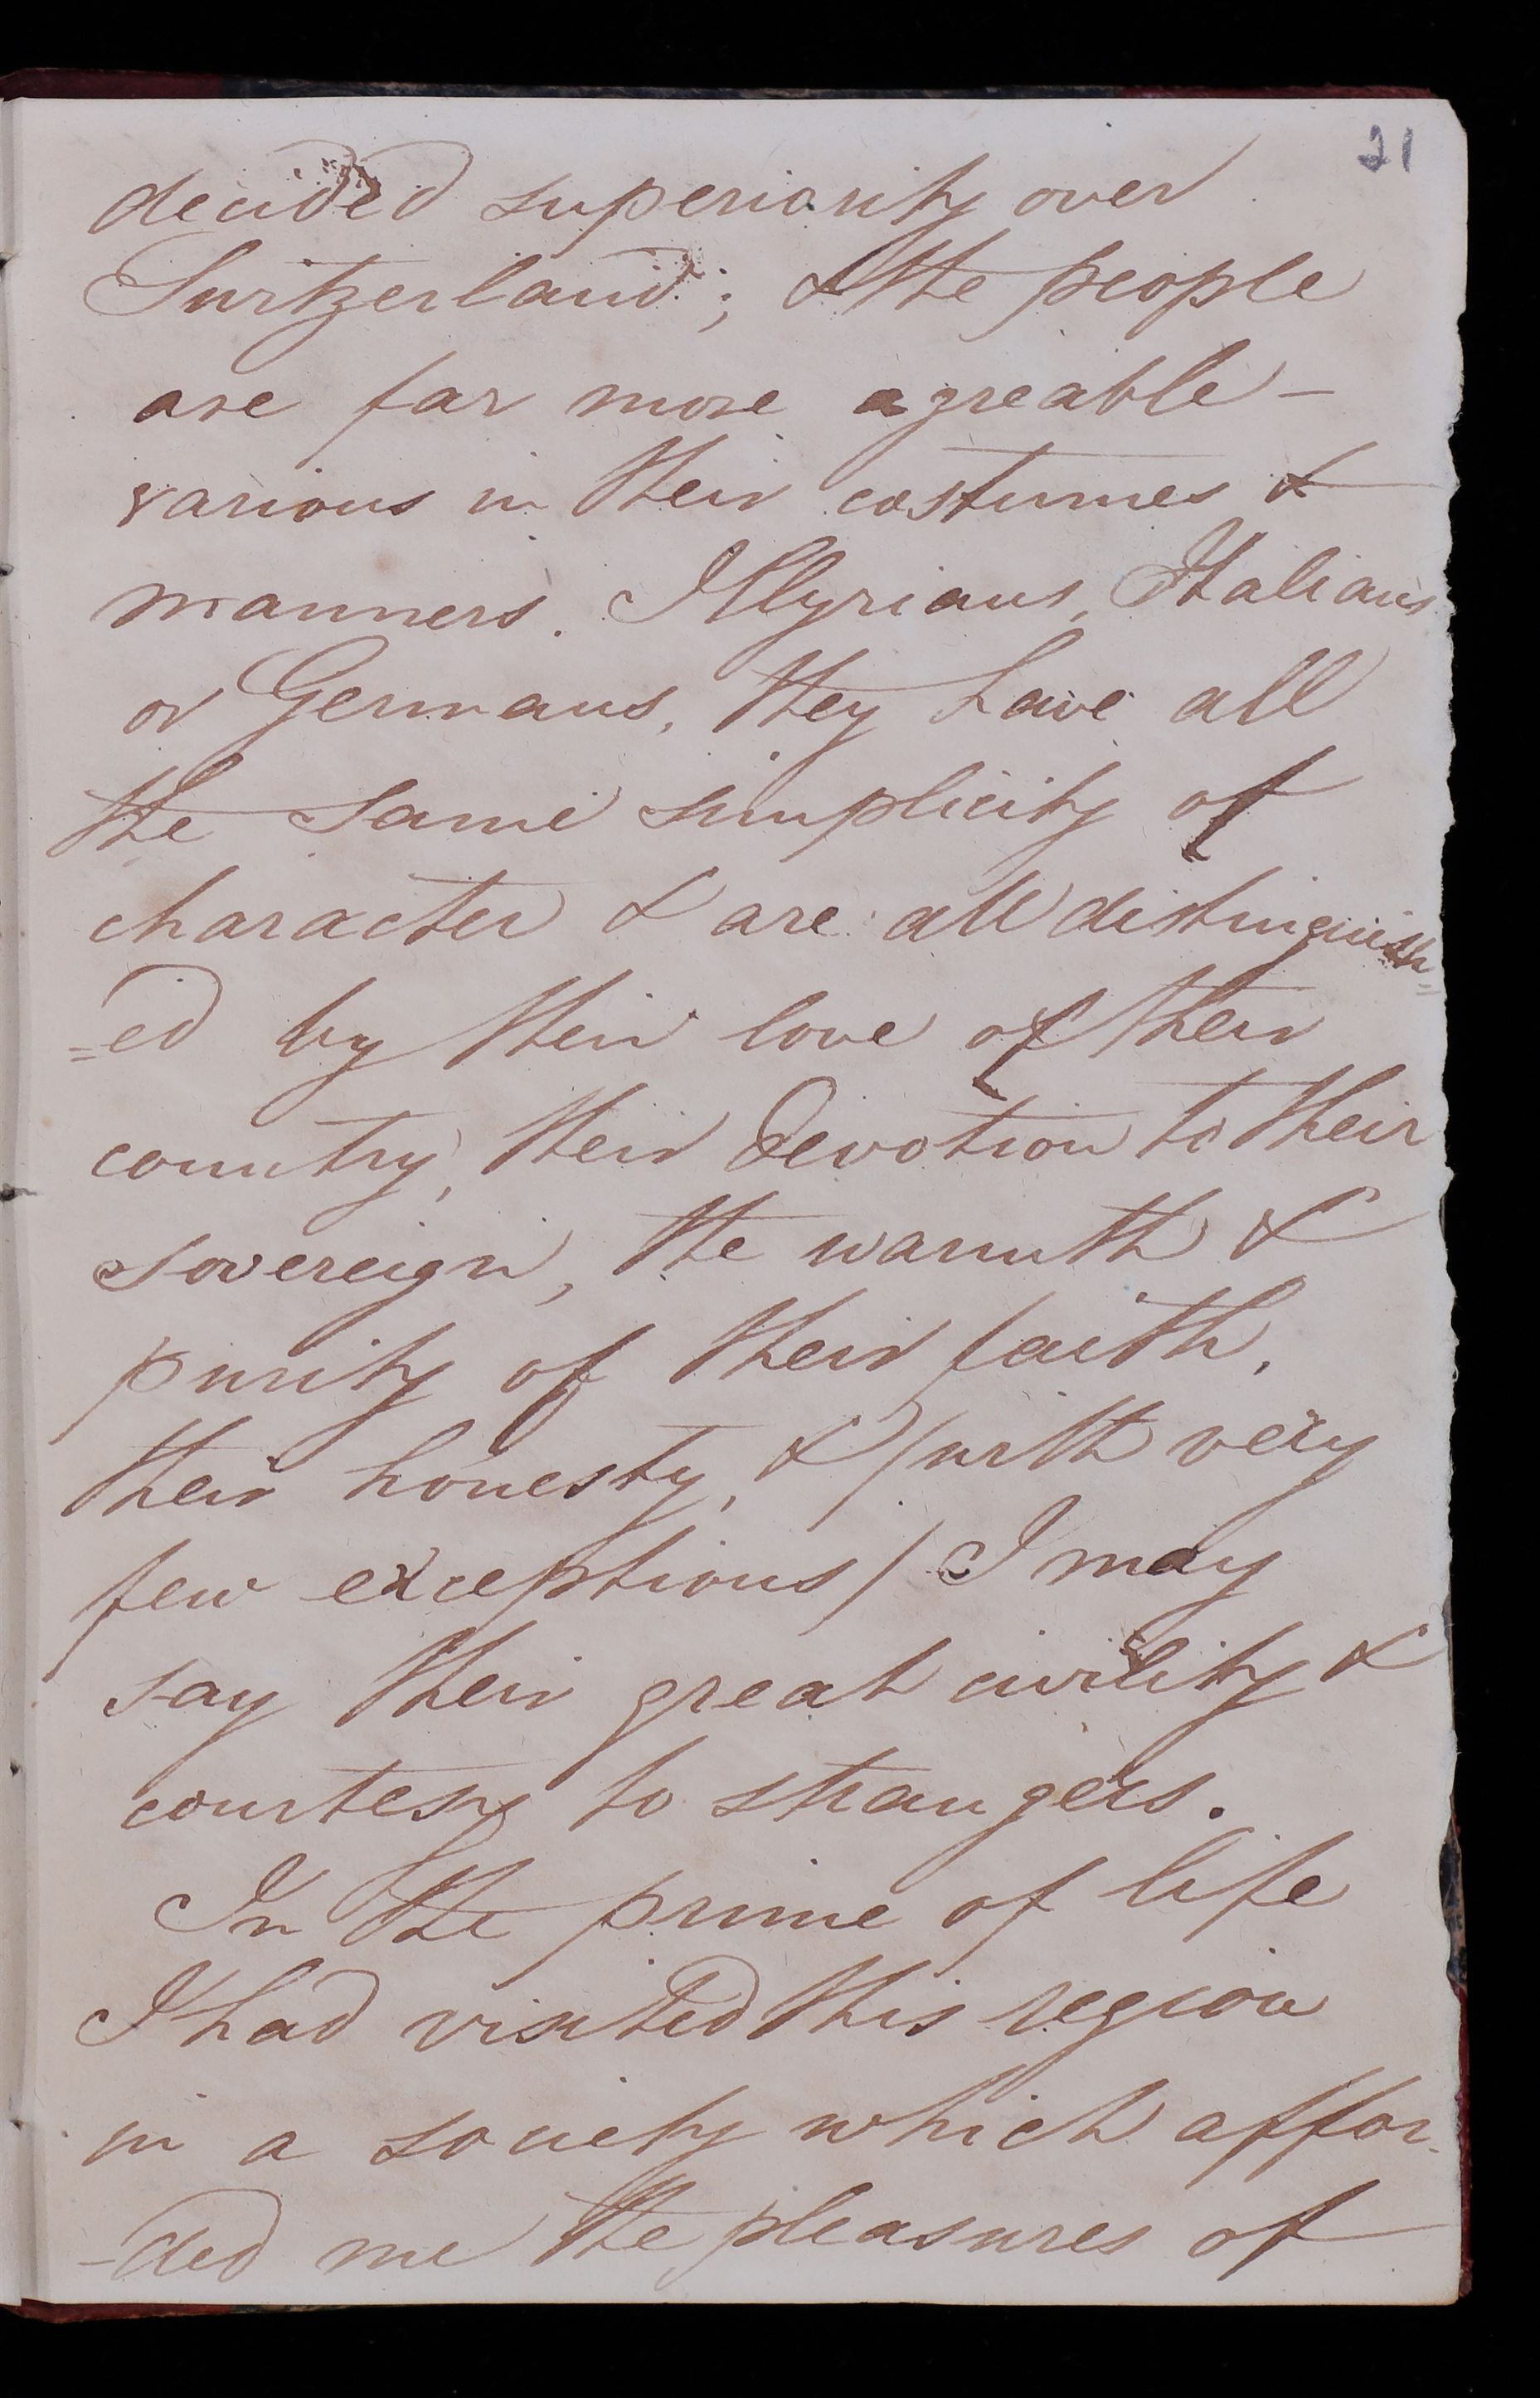 21
decided superiority over
Switzerland; & the people
are far more agreable –
various in their costumes &
manners. Illyrians, Italians
or Germans, they have all
the same simplicity of
character & are all distinguish=
=ed by their love of their
country, their devotion to their
sovereign, the warmth &
purity of their faith,
their honesty, & /with very
few exceptions/ I may
say their great civility &
courtesy to strangers.
In the prime of life
I had visited this region
in a society which affor-
-ded me the pleasures of